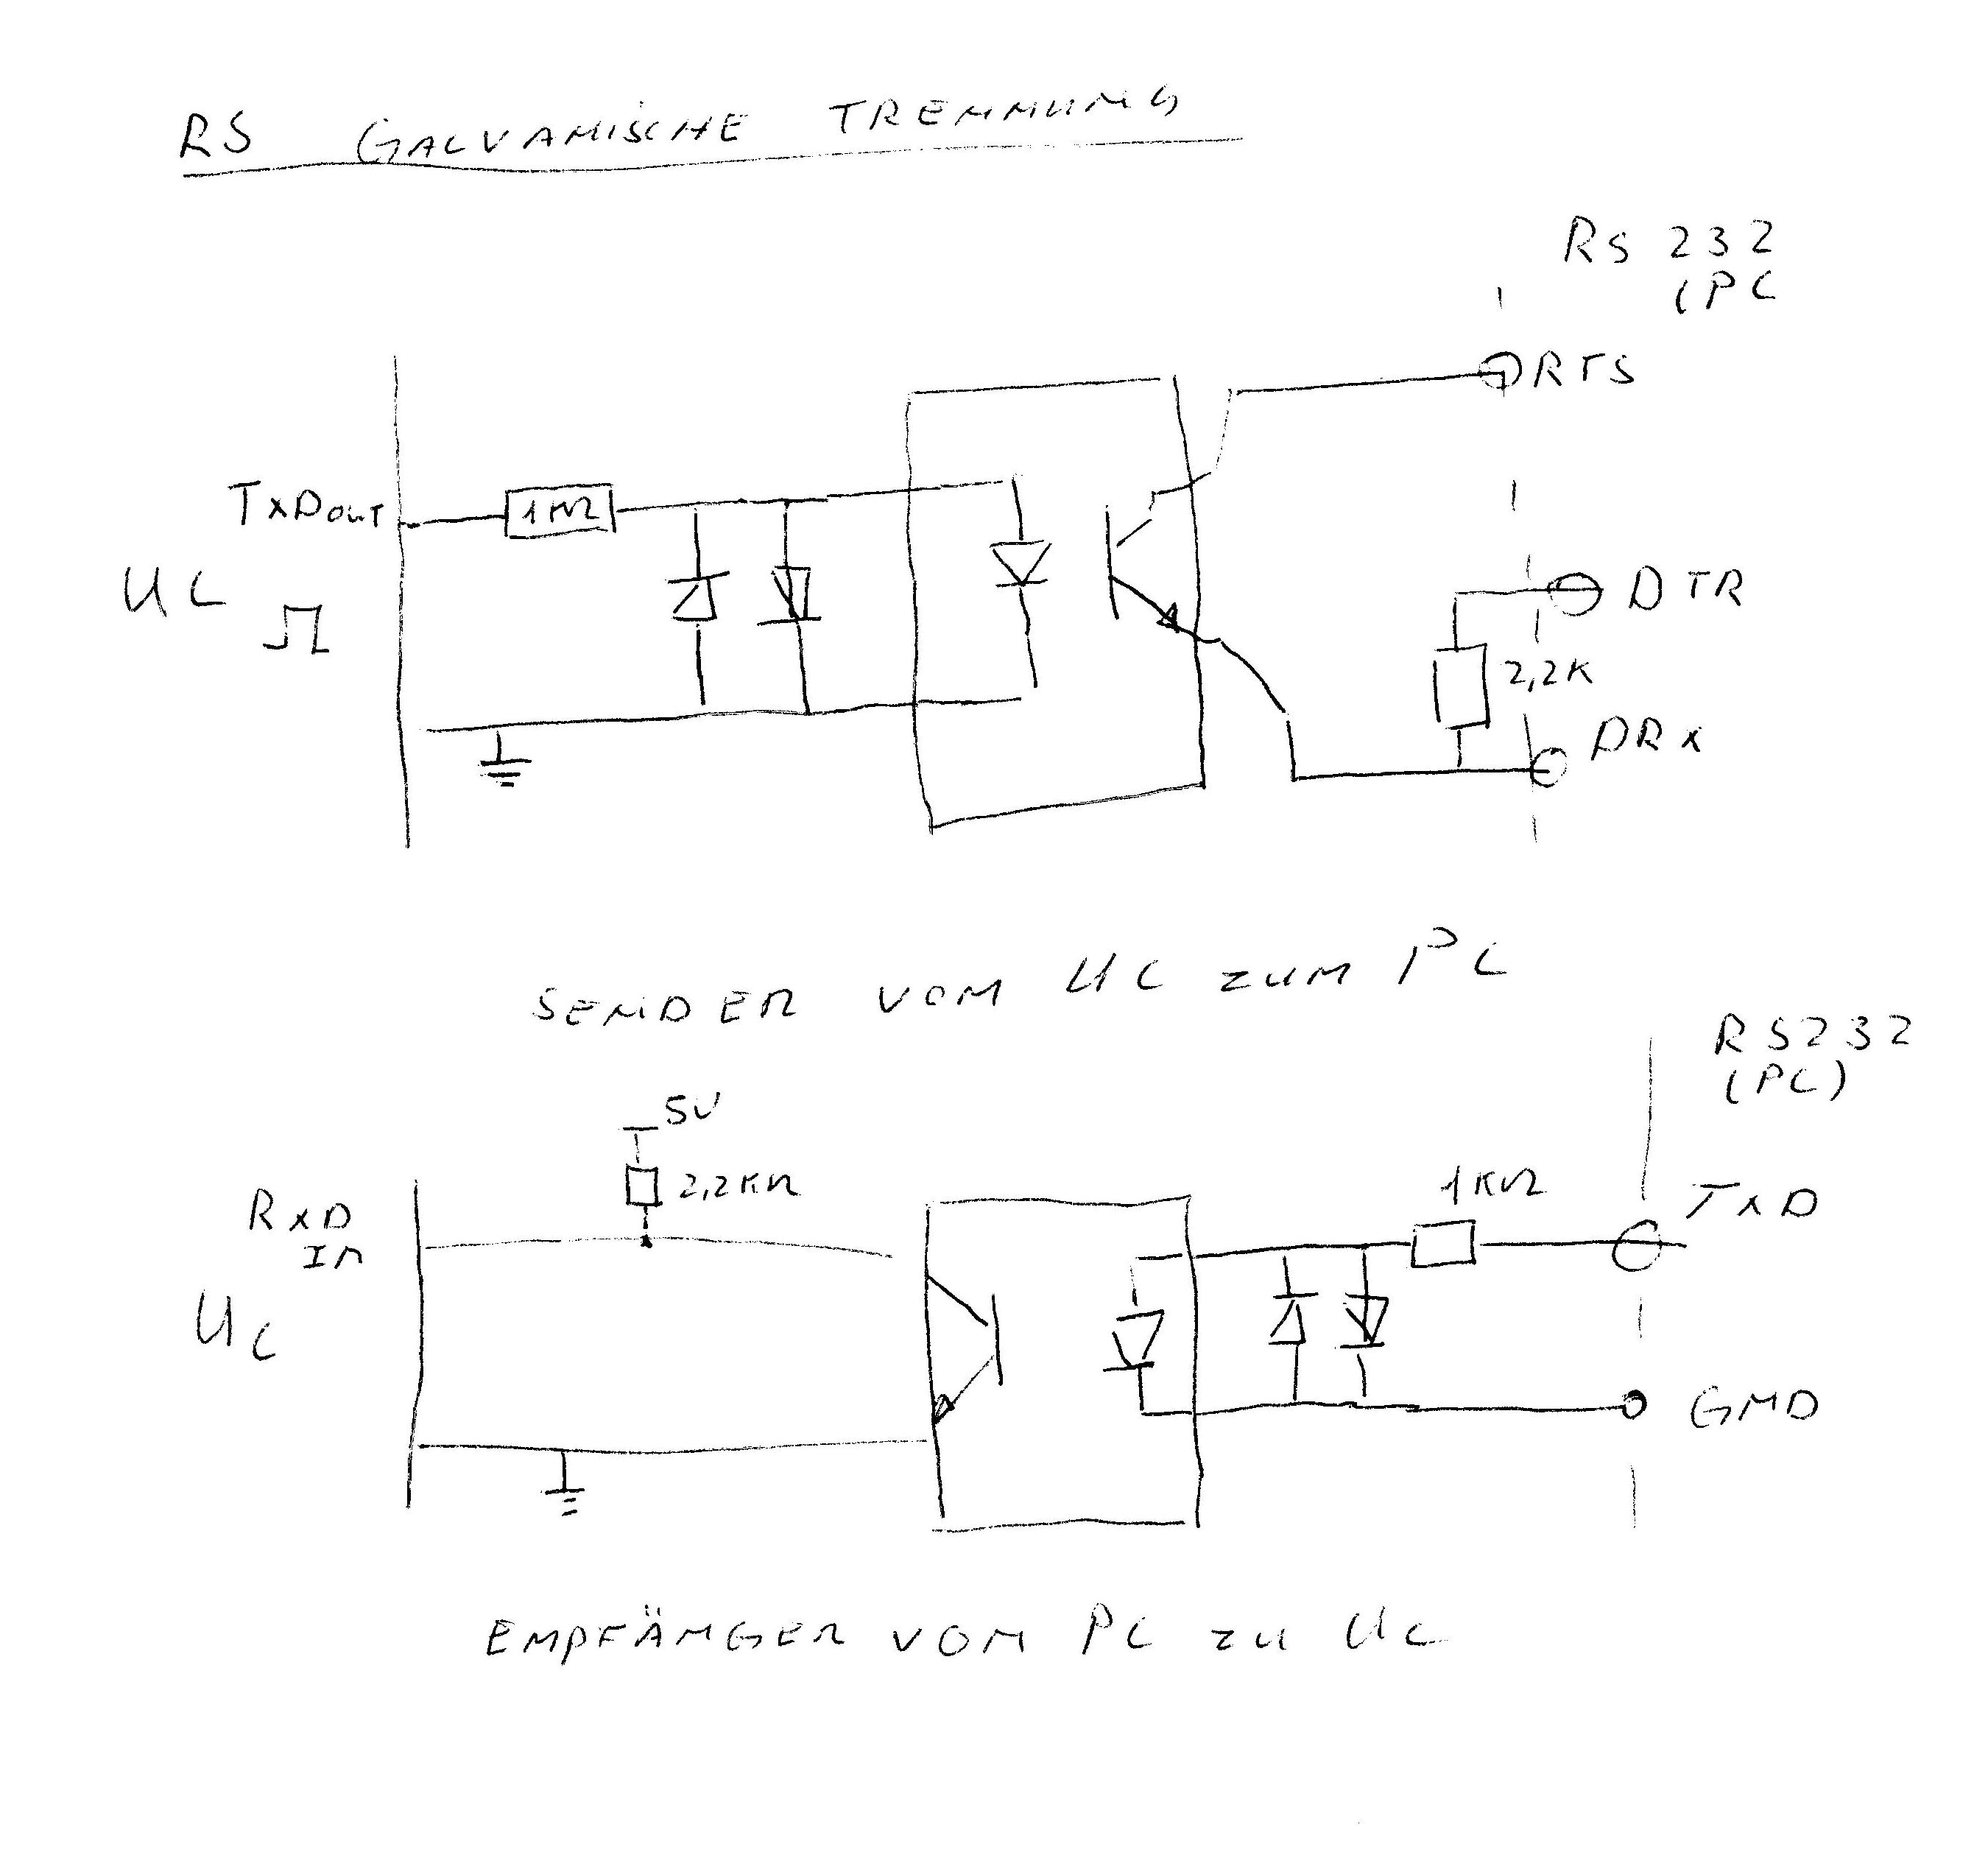 RS GALVANISCHE TRENNUNG
RS 232
(PC
RTS
TxDout
1KΩ
UC
DTR
2,2K
DRx
SENDER VOM UC ZUM PC
RS232
(PC)
5V
2,2KΩ
1KΩ
TxD
RxD
In
UC
GND
EMPFÄNGER VOM PC ZU UC